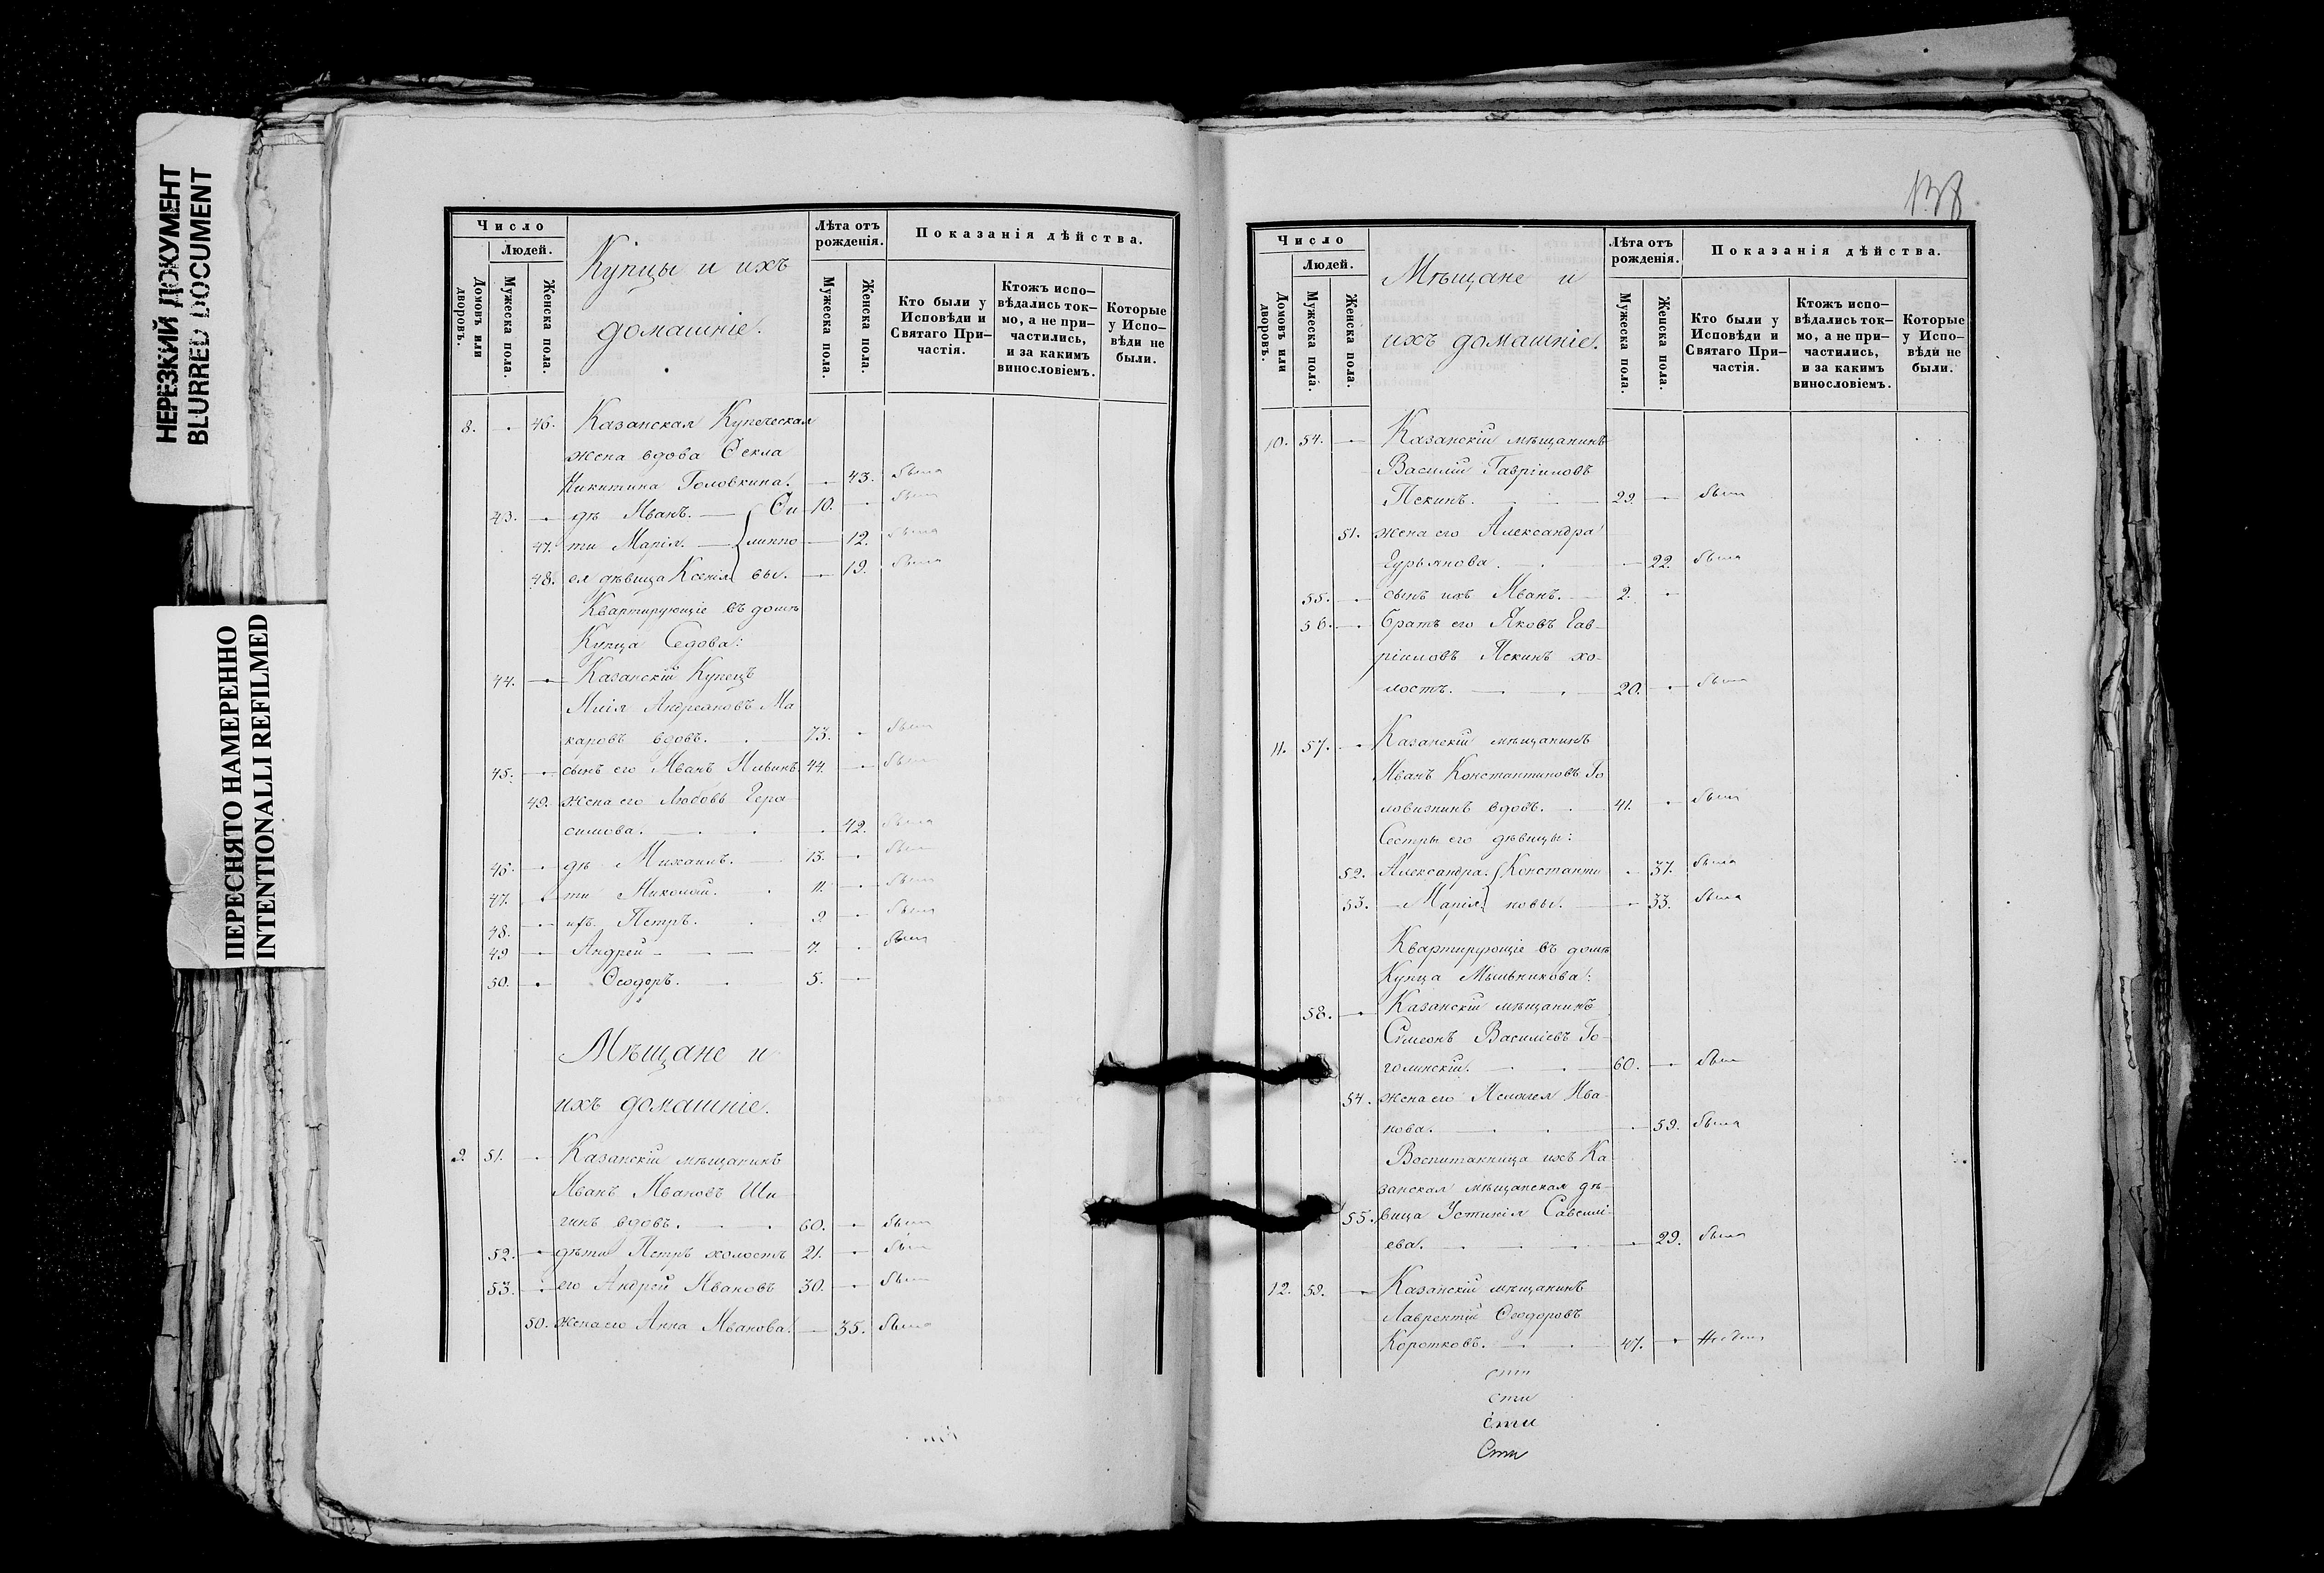 НЕРЕЗКИЙ ДОКУМЕНТ
BLURRED DOCUMENT
ПЕРЕСНЯТО НАМЕРЕННО
INTENTIONALLI REFILMED
Число
Людей.
Домовъ или дворовъ.
Мужеска пола.
Женска пола.
Купцы и ихъ
домашніе.
Лѣта отъ рожденія.
Мужеска пола.
Женска пола.
Показанія дѣйства.
Кто были у Исповѣди и Святаго При-частія.
Ктожъ испо-вѣдались ток-мо, а не при-частились, и за какимъ винословіемъ.
Которые у Испо-вѣди не были.
8. 46. Казанская Купеческая
жена вдова Ѳекла
Никитина Головкина. 43. была
43. дѣ Иванъ. Фи 10. былъ
47. ти Марія. липпо 12. была
48. ея дѣвица Ксенія вы. 19. была
Квартирующіе въ домѣ
Купца Седова:
44. Казанскій Купецъ
Илія Андреяновъ Ма
каровъ вдовъ. 73. былъ
45. сынъ его Иванъ Ильинъ 44. былъ
49. жена его Любовь Гера
симова. 42. была
46. дѣ Михаилъ. 13. былъ
47. ти Николай. 11. былъ
48. ихъ Петръ. 9. былъ
49 Андрей 7. былъ
50. Ѳеодоръ. 5.
Мѣщане и
ихъ домашніе.
9. 51. Казанскій мѣщанинъ
Иванъ Ивановъ Ши
гинъ вдовъ. 60. былъ
52. дѣти Петръ холостъ 21. былъ
53. его Андрей Ивановъ 30. былъ
50. Жена его Анна Иванова. 35. была
138
Число
Людей.
Домовъ или дворовъ.
Мужеска пола.
Женска пола.
Мѣщане и
ихъ домашніе.
Лѣта отъ рожденія.
Мужеска пола.
Женска пола.
Показанія дѣйства.
Кто были у Исповѣди и Святаго При-частія.
Ктожъ испо-вѣдались ток-мо, а не при-частились, и за какимъ винословіемъ.
Которые у Испо-вѣди не были.
10. 54. Казанскій мѣщанинъ
Василій Гавріиловъ
Пекинъ. 29. былъ
51. жена его Александра
Гурьянова. 22. была
55. сынъ ихъ Иванъ. 2.
56. Братъ его Яковъ Гав-
ріиловъ Пекинъ хо-
лостъ. 20. былъ
11. 57. Казанскій мѣщанинъ
Иванъ Константиновъ Го
ловизнинъ вдовъ. 41. былъ
Сестры его дѣвицы:
52. Александра. Константи 37. была
53. Марія. новы. 33. была
Квартирующіе въ домѣ
Купца Мыльникова:
58. Казанскій мѣщанинъ
Симеонъ Василіевъ Го-
голинскій. 60. былъ
54. жена его Пелагея Ива
нова. 59. была
Воспитанница ихъ Ка
занская мѣщанская дѣ-
55. вица Устинія Савелiи-
ева. 29. была
12. 59. Казанскій мѣщанинъ
Лаврентій Ѳеодоровъ
Коротковъ. 47.
сти
сти
сти
Сти